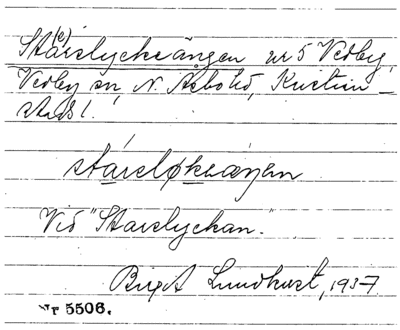 Star(e)slyckeängen nr 5 Vedby,
Vedby sn, N. Åsbo hd, Kristian-
stads l.
Vid "Starslyckan."
Birgit Lundkvist, 1937
Nr 5506.